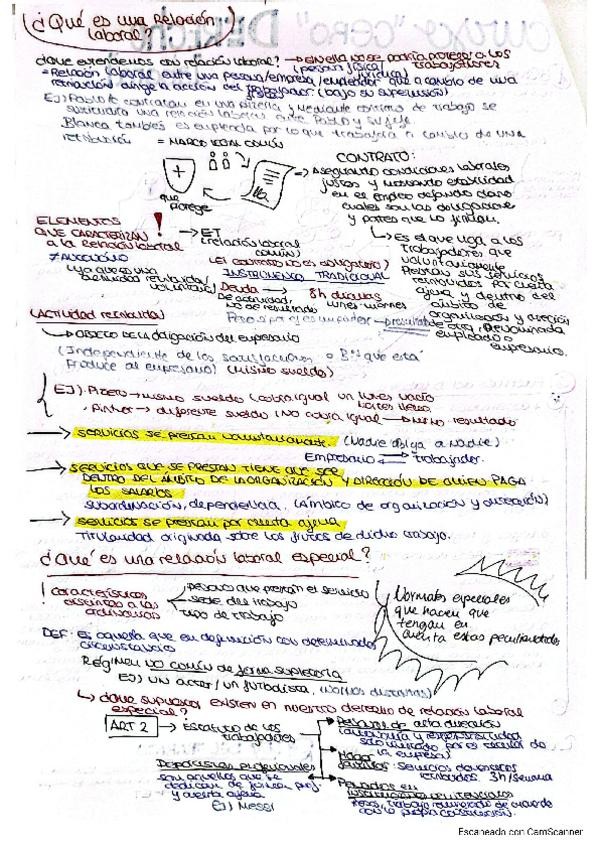 ¿Qué es una Relación
laboral?
¿Qué entendemos con relación laboral? → En ella no se podría proteger a los
trabajadores
= Relación laboral entre una persona/empresa/empleador que a cambio de una
(persona física/jurídica)
retribución dirige la acción del trabajador. (bajo su supervisión)
EJ) Pablo le contratan en una pizzería y mediante contrato de trabajo se
una relación laboral entre Pablo y su jefe.
Blanca también es empleada por lo que trabajará a cambio de una
retribución = MARCO LEGAL COMÚN
que
protege
CONTRATO:
→ Asegurando condiciones laborales
justas y estabilidad
en el empleo dejando claro
cuales son las obligaciones
y partes que lo firman.
↳ Es el que liga a los
trabajadores que
voluntariamente
prestan sus servicios
retribuidos por cuenta
ajena y dentro del
ámbito de
organización y dirección
de otra, denominada
empleador o
empresario.
ELEMENTOS
QUE CARACTERIZAN
a la relación laboral
!
→ ET
(relación laboral
común)
≠ AUTÓNOMO
(El contrato no es obligatorio)
INSTRUMENTO TRADICIONAL
(ya que es una
actividad retribuida/
voluntaria)
Deuda → 8h diarias
De actividad, lunes-viernes
no de resultado
(Actividad retribuida)
→ OBJETO DE LA obligación del empresario
(Independiente de las o Bº que esta
produce al empresario) (mismo sueldo)
EJ) Pizzero → mismo sueldo (cobra igual un lunes vacío
martes lleno)
Pintor → diferente sueldo (NO cobra igual → mismo resultado
→ servicios se prestan voluntariamente. (Nadie obliga a nadie)
Empresario ⇄ trabajador.
→ SERVICIOS QUE SE PRESTAN TIENE QUE SER
DENTRO DEL ÁMBITO DE LA ORGANIZACIÓN Y DIRECCIÓN DE QUIEN PAGA
LOS SALARIOS
subordinación, dependencia, (Ámbito de organización y dirección)
→ servicios se prestan por cuenta ajena
Titularidad originada sobre los frutos de dicho trabajo.
¿Qué es una relación laboral especial?
! Características
distintas a las
ordinarias
persona que prestan el servicio
sede del trabajo
tipo de trabajo
Normales especiales
que hacen que
tengan en
cuenta estas peculiaridades
DEF: es aquella que en definición con determinada
circunstancia
Régimen NO común de forma supletoria
EJ) UN actor / un futbolista,
↳ ¿Qué supuestos existen en nuestro derecho de relación laboral
especial?
ART 2 → Estatuto de los
trabajadores
Personal de alta dirección
por el escalar de
la empresa)
Hogar
familiar: servicios domésticos
retribuidos. 3h/semana
Penados en
instituciones penitenciarias
Presos, trabajo remunerado de acuerdo
con la propia
Deportistas profesionales
son aquellos que se
dedican de forma prof.
y cuenta ajena
EJ) Messi
Escaneado con CamScanner